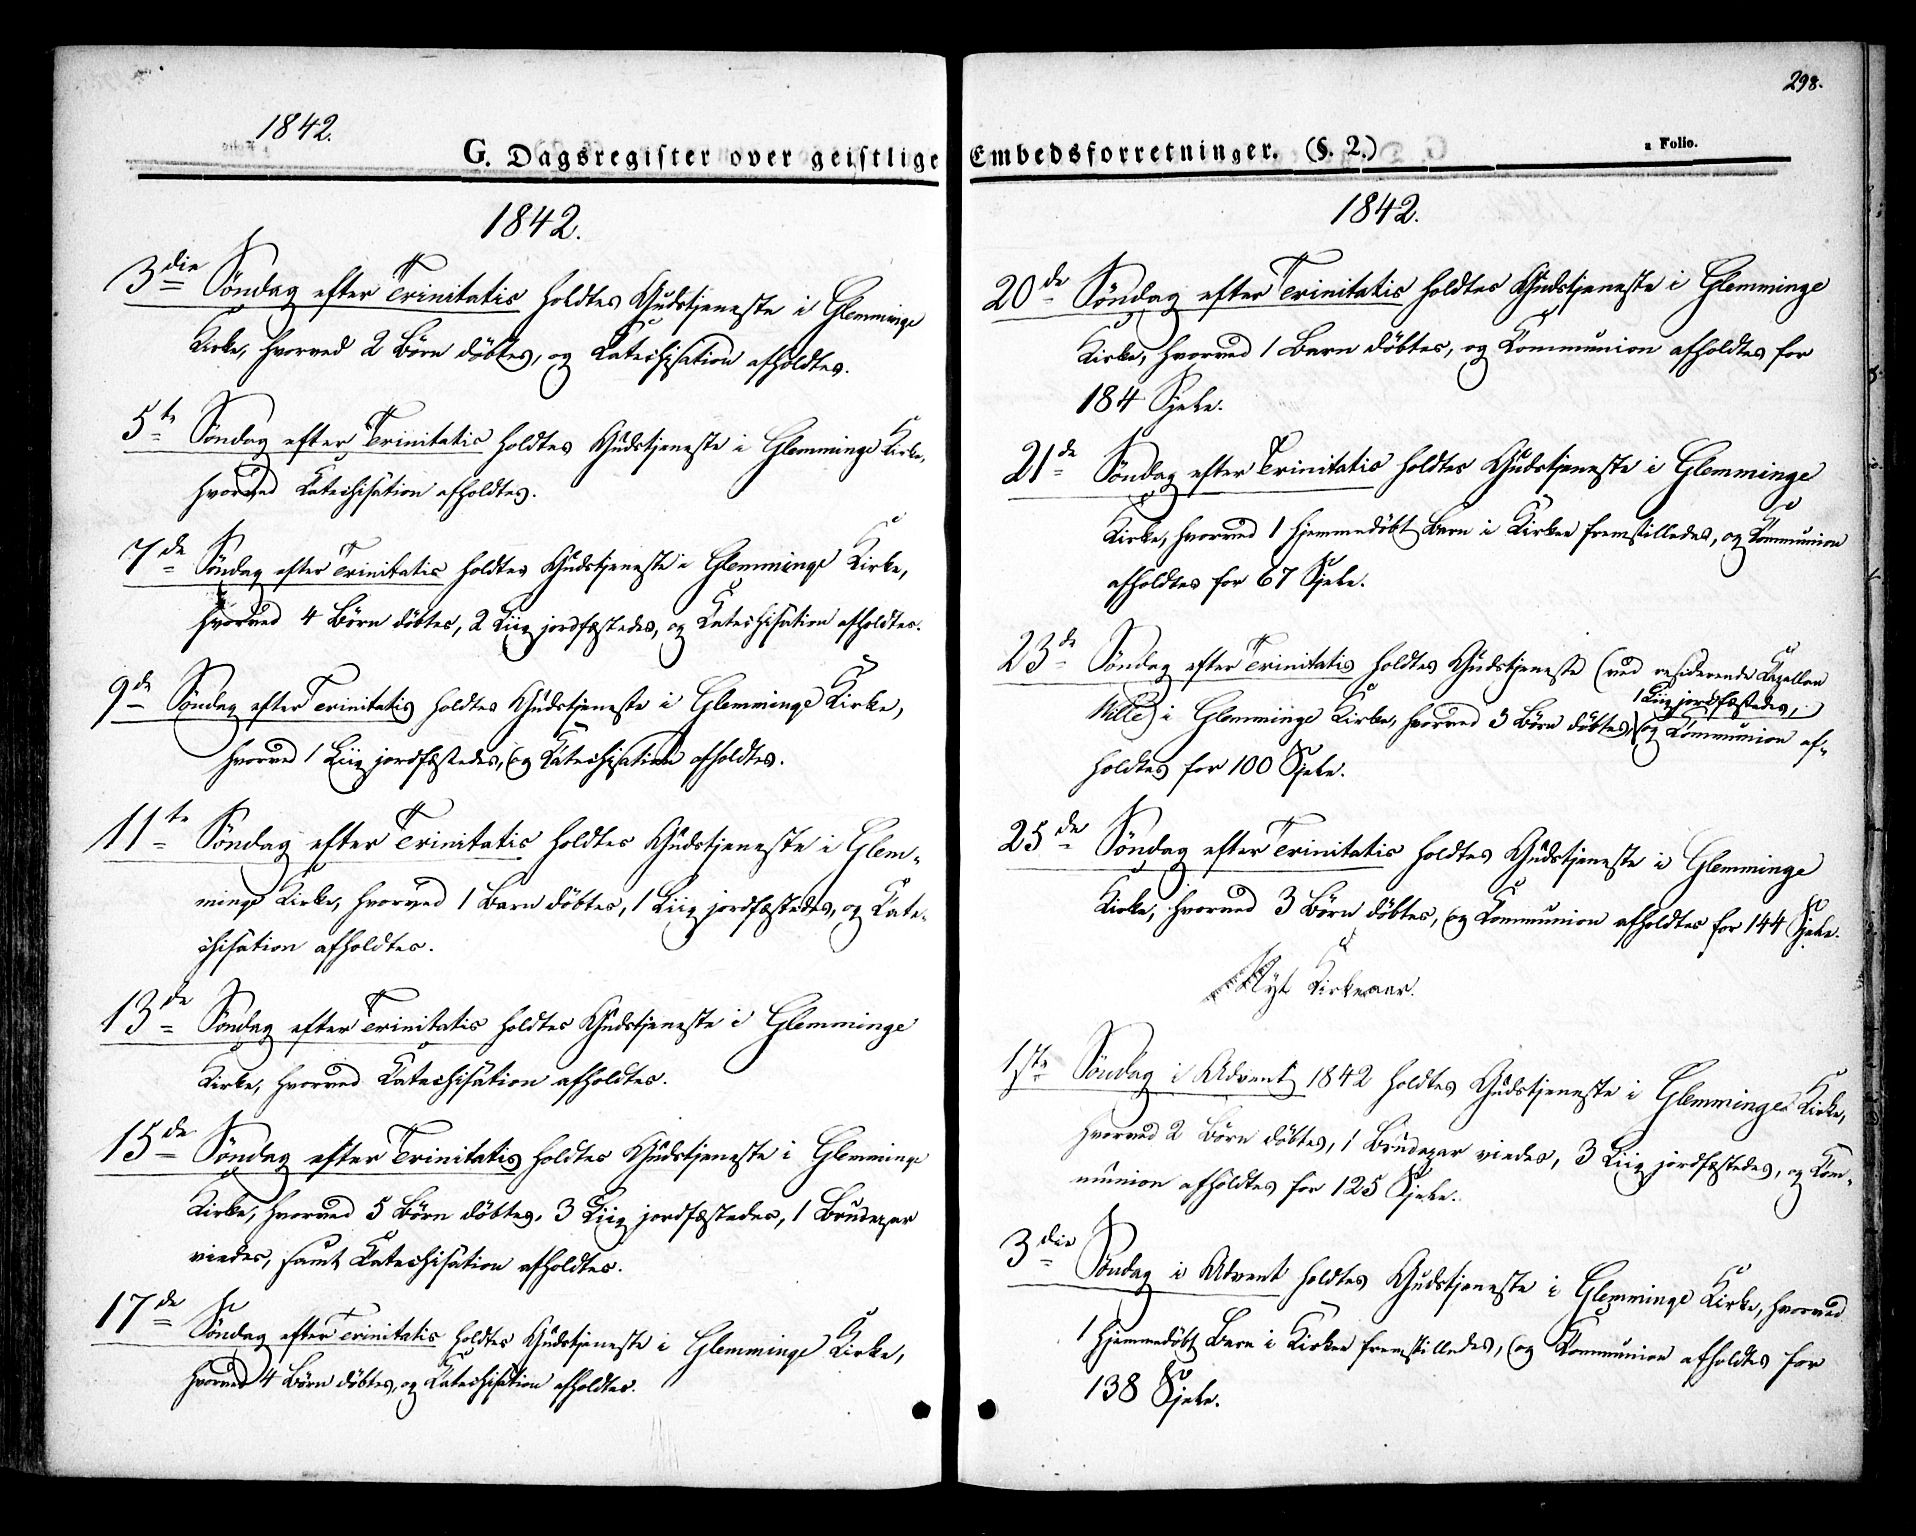 1842.
G. Dagsregister over geistlige
1842.
3die Søndag efter Trinitatis holdtes Gudstjeneste i Glemminge
Kirke, hvorved 2 Børn døbtes, og Katechisation afholdtes.
5te Søndag efter Trinitatis holdtes Gudstjeneste i Glemminge Kirke,
hvorved Katechisation afholdtes.
7de Søndag efter Trinitatis holdtes Gudstjeneste i Glemminge Kirke,
hvorved 4 Børn døbtes, 2 Liig jordfæstedes, og Katechisation afholdtes.
9de Søndag efter Trinitatis holdtes Gudstjeneste i Glemminge Kirke,
hvorved 1 Liig jordfæstedes, og Katechisation afholdtes.
11te Søndag efter Trinitatis holdtes Gudstjeneste i Glem-
minge Kirke, hvorved 1 Barn døbtes, 1 Liig jordfæstedes, og Kate-
chisation afholdtes.
13de Søndag efter Trinitatis holdtes Gudstjeneste i Glemminge
Kirke, hvorved Katechisation afholdtes.
15de Søndag efter Trinitatis holdtes Gudstjeneste i Glemminge
Kirke, hvorved 5 Børn døbtes, 3 Liig jordfæstedes, 1 Brudepar
viedes, samt Katechisation afholdtes.
17de Søndag efter Trinitatis holdtes Gudstjeneste i Glemminge Kirke,
hvorved 4 Børn døbtes, og Katechisation afholdtes.
298.
Embedsforretninger. (§. 2.)
a Folio.
1842.
20de Søndag efter Trinitatis holdtes Gudstjeneste i Glemminge
Kirke, hvorved 1 Barn døbtes, og Kommunion afholdtes for
184 Sjele.
21de Søndag efter Trinitatis holdtes Gudstjeneste i Glemminge
Kirke, hvorved 1 hjemmedøbt Barn i Kirken fremstilledes, og Kommunion
afholdtes for 67 Sjele.
23de Søndag efter Trinitatis holdtes Gudstjeneste (ved residerende Kapellan
1 Liig jordfæstedes,
Wille) i Glemminge Kirke, hvorved 3 Børn døbtes, og Kommunion af-
holdtes for 100 Sjele.
25de Søndag efter Trinitatis holdtes Gudstjeneste i Glemminge
Kirke, hvorved 3 Børn døbtes, og Kommunion afholdtes for 144 Sjele.
Nyt Kirkeaar.
1ste Søndag i Advent 1842 holdtes Gudstjeneste i Glemminge Kirke,
hvorved 2 Børn døbtes, 1 Brudepar viedes, 3 Liig jordfæstedes, og Kom-
munion afholdtes for 125 Sjele.
3die Søndag i Advent holdtes Gudstjeneste i Glemminge Kirke, hvorved
1 hjemmedøbt Barn i Kirken fremstilledes, og Kommunion afholdtes for
138 Sjele.